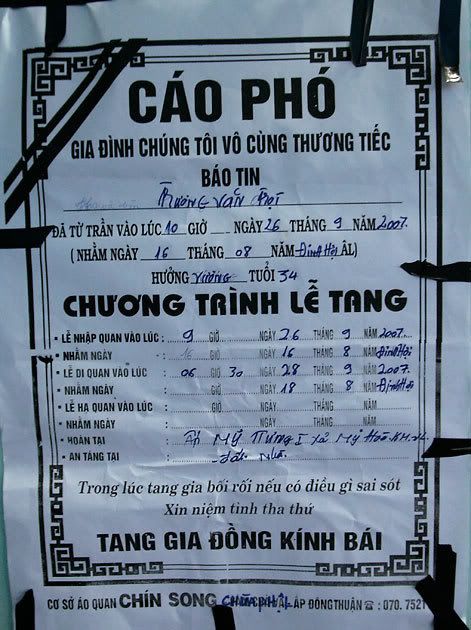 CÁO PHÓ
GIA ĐÌNH CHÚNG TÔI VÔ CÙNG THƯƠNG TIẾC
BÁO TIN
Trương Văn
ĐÃ TỪ TRẦN VÀO LÚC 10 GIỜ NGÀY 26 THÁNG 9 NĂM 2007.
( NHẰM NGÀY 16 THÁNG 08 NĂM Đinh Hợi ÂL)
HƯỞNG Dương TUỔI 34
CHƯƠNG TRÌNH LỄ TANG
• LỄ NHẬP QUAN VÀO LÚC : 9 GIỜ NGÀY 26 THÁNG 9 NĂM 2007.
• NHẰM NGÀY : 16 GIỜ NGÀY 16 THÁNG 8 NĂM Đinh Hợi
• LỄ DI QUAN VÀO LÚC : 06 GIỜ 30 NGÀY 28 THÁNG 9 NĂM 2007.
• NHẰM NGÀY : GIỜ NGÀY 18 THÁNG 8 NĂM Đinh Hợi
• LỄ HẠ QUAN VÀO LÚC : GIỜ NGÀY THÁNG NĂM
• NHẰM NGÀY : GIỜ NGÀY THÁNG NĂM
• HOÀN TẠI : Ấp Mỹ Hưng I Xã Mỹ Hoà
• AN TÁNG TẠI : Đất Nhà
Trong lúc tang gia bối rối nếu có điều gì sai sót
Xin niệm tình tha thứ
TANG GIA ĐỒNG KÍNH BÁI
CƠ SỞ ÁO QUAN CHÍN SONG ẤP ĐÔNG THUẬN ☎ : 070. 7521